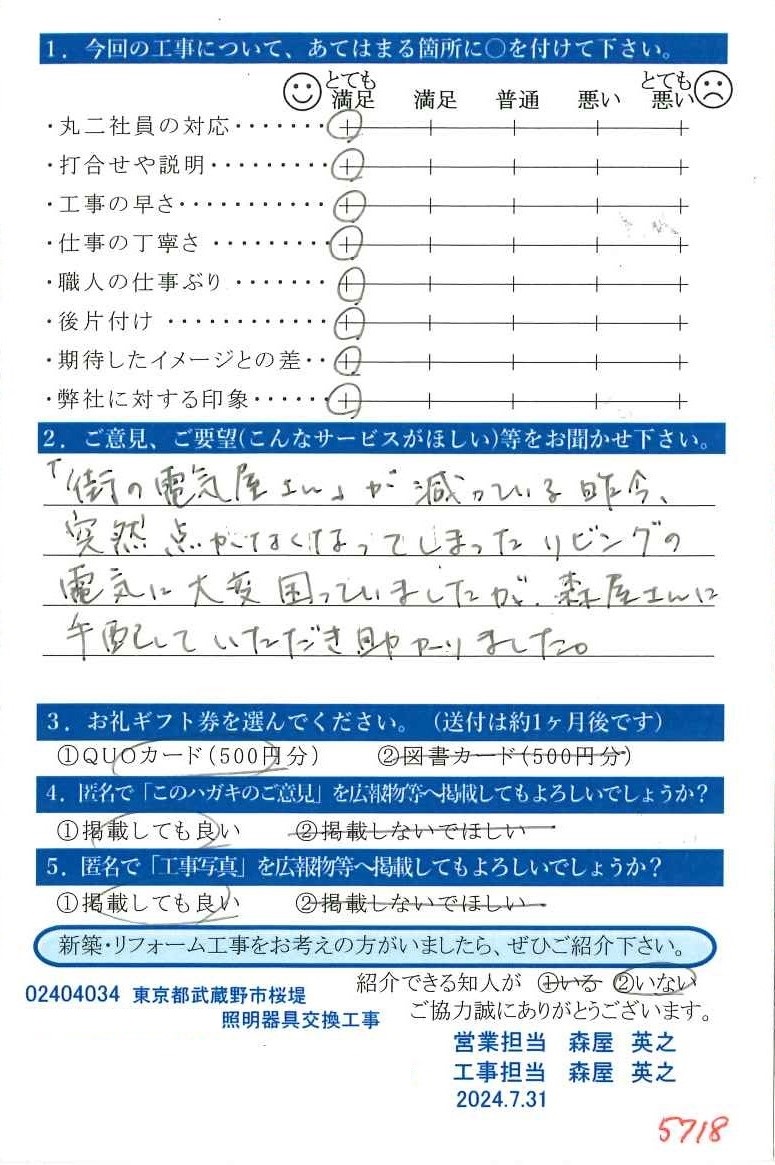 1．今回の工事について、あてはまる箇所に○を付けて下さい。
とても満足 満足 普通 悪い とても悪い
・丸二社員の対応・・・・・・
・打合せや説明・・・・・・・・
・工事の早さ・・・・・・・・・・
・仕事の丁寧さ・・・・・・・・
・職人の仕事ぶり・・・・・・
・後片付け・・・・・・・・・・・
・期待したイメージとの差・・
・弊社に対する印象・・・・・
2．ご意見、ご要望(こんなサービスがほしい)等をお聞かせ下さい。
「街の電気屋さん」が減っている昨今、
突然点かなくなってしまったリビングの
電気に大変困っていましたが、森屋さんに
手配していただき助かりました。
3．お礼ギフト券を選んでください。（送付は約1ヶ月後です）
①QUOカード(500円分) ②図書カード(500円分)
4．匿名で「このハガキのご意見」を広報物等へ掲載してもよろしいでしょうか？
①掲載しても良い ②掲載しないでほしい
5．匿名で「工事写真」を広報物等へ掲載してもよろしいでしょうか？
①掲載しても良い ②掲載しないでほしい
新築・リフォーム工事をお考えの方がいましたら、ぜひご紹介下さい。
紹介できる知人が ①いる ②いない
02404034 東京都武蔵野市桜堤
ご協力誠にありがとうございます。
照明器具交換工事
営業担当 森屋 英之
工事担当 森屋 英之
2024.7.31
5718